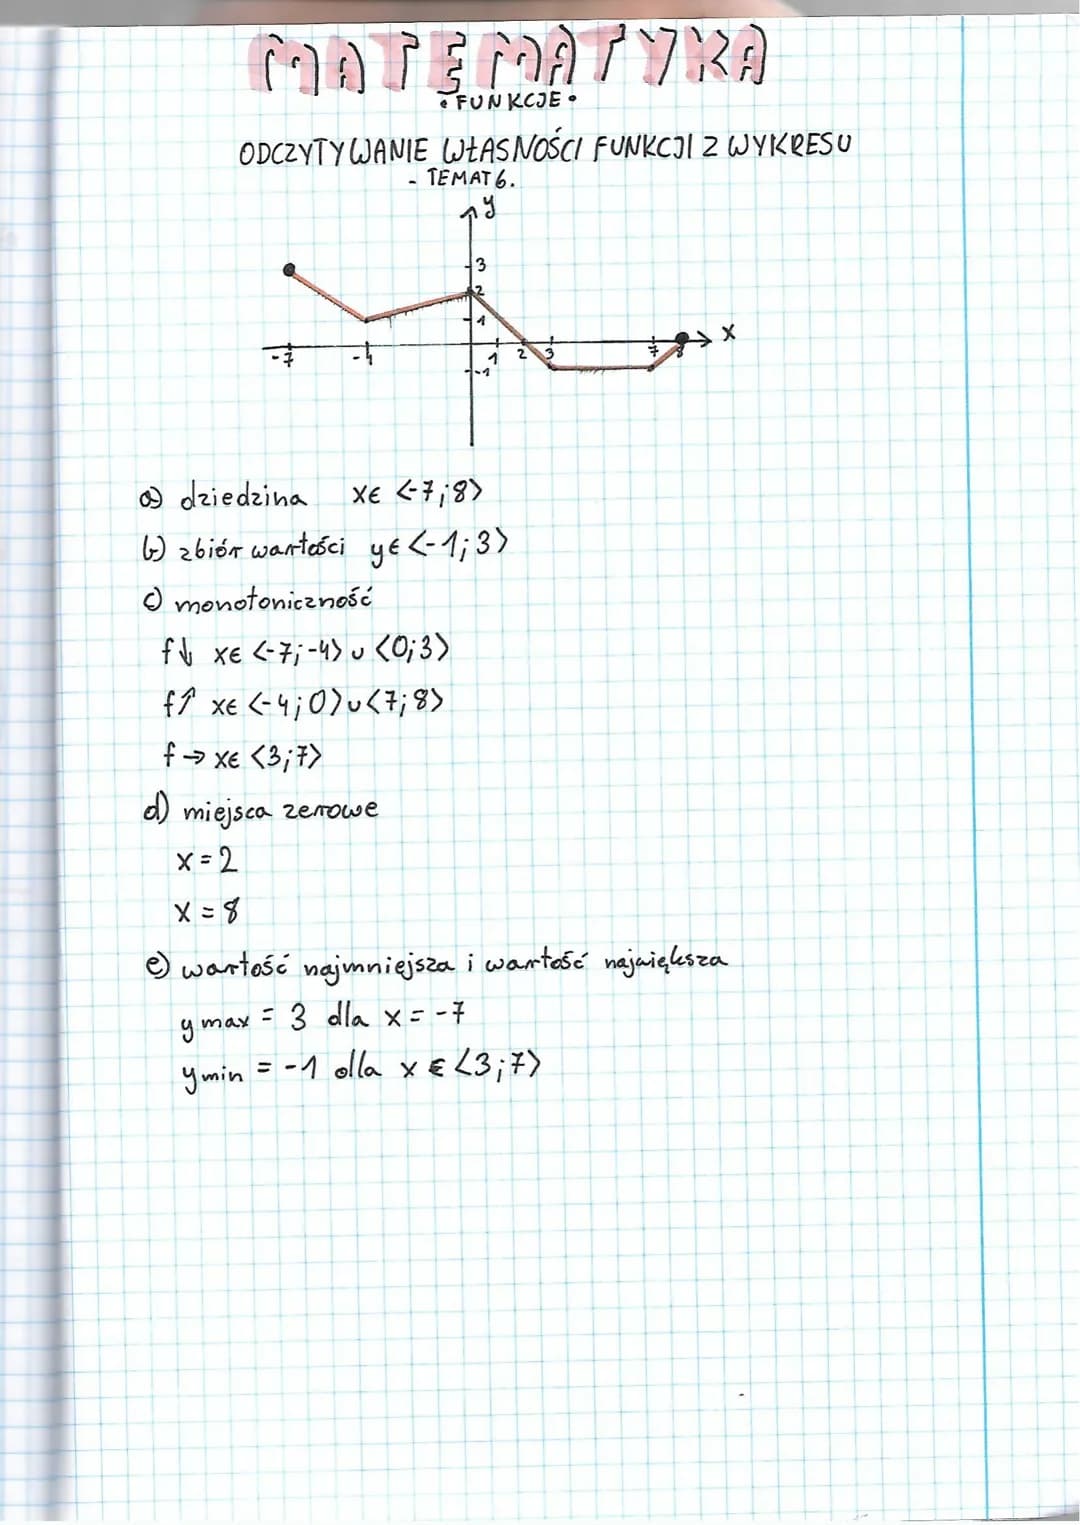 MATEMATYKA
• FUNKCJE •
ODCZYTYWANIE WŁASNOŚCI FUNKCJI Z WYKRESU
- TEMAT 6.
y
3
2
1
x
-7 -4 1 2 3 7 8
-1
a) dziedzina x∈ <-7;8>
b) zbiór wartości y∈<-1;3>
c) monotoniczność
f↓ x∈ <-7;-4> ∪ <0;3>
f↑ x∈ <-4;0>∪<7;8>
f→ x∈ <3;7>
d) miejsca zerowe
x = 2
x = 8
e) wartość najmniejsza i wartość największa
y max = 3 dla x = -7
y min = -1 dla x ∈ <3;7>